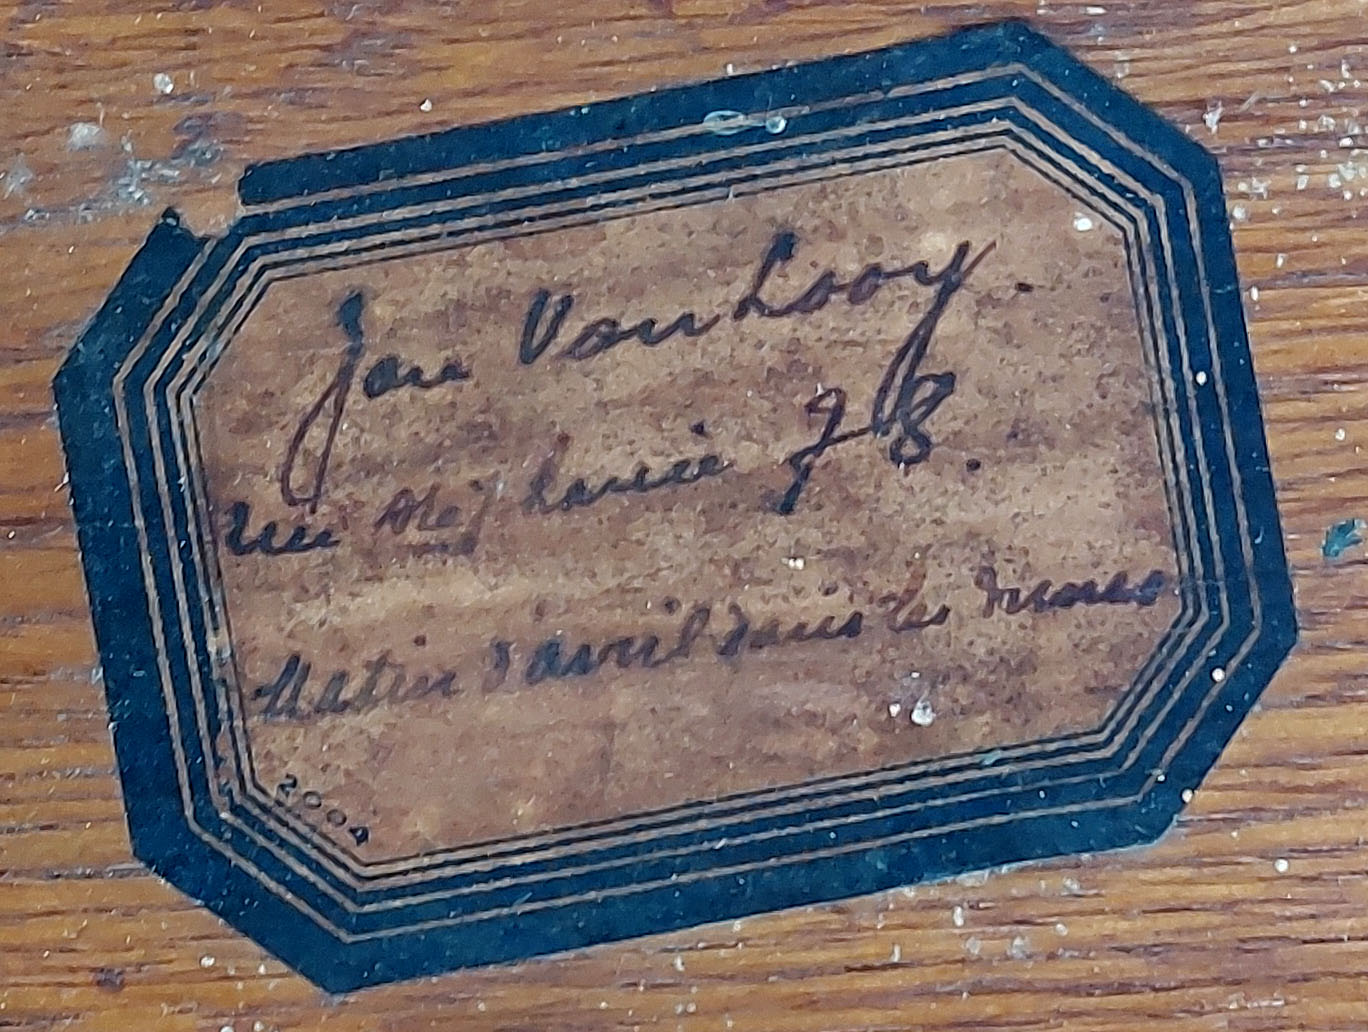 Jan Van Looy.
98.
Matin d'avril dans les dunes
2004